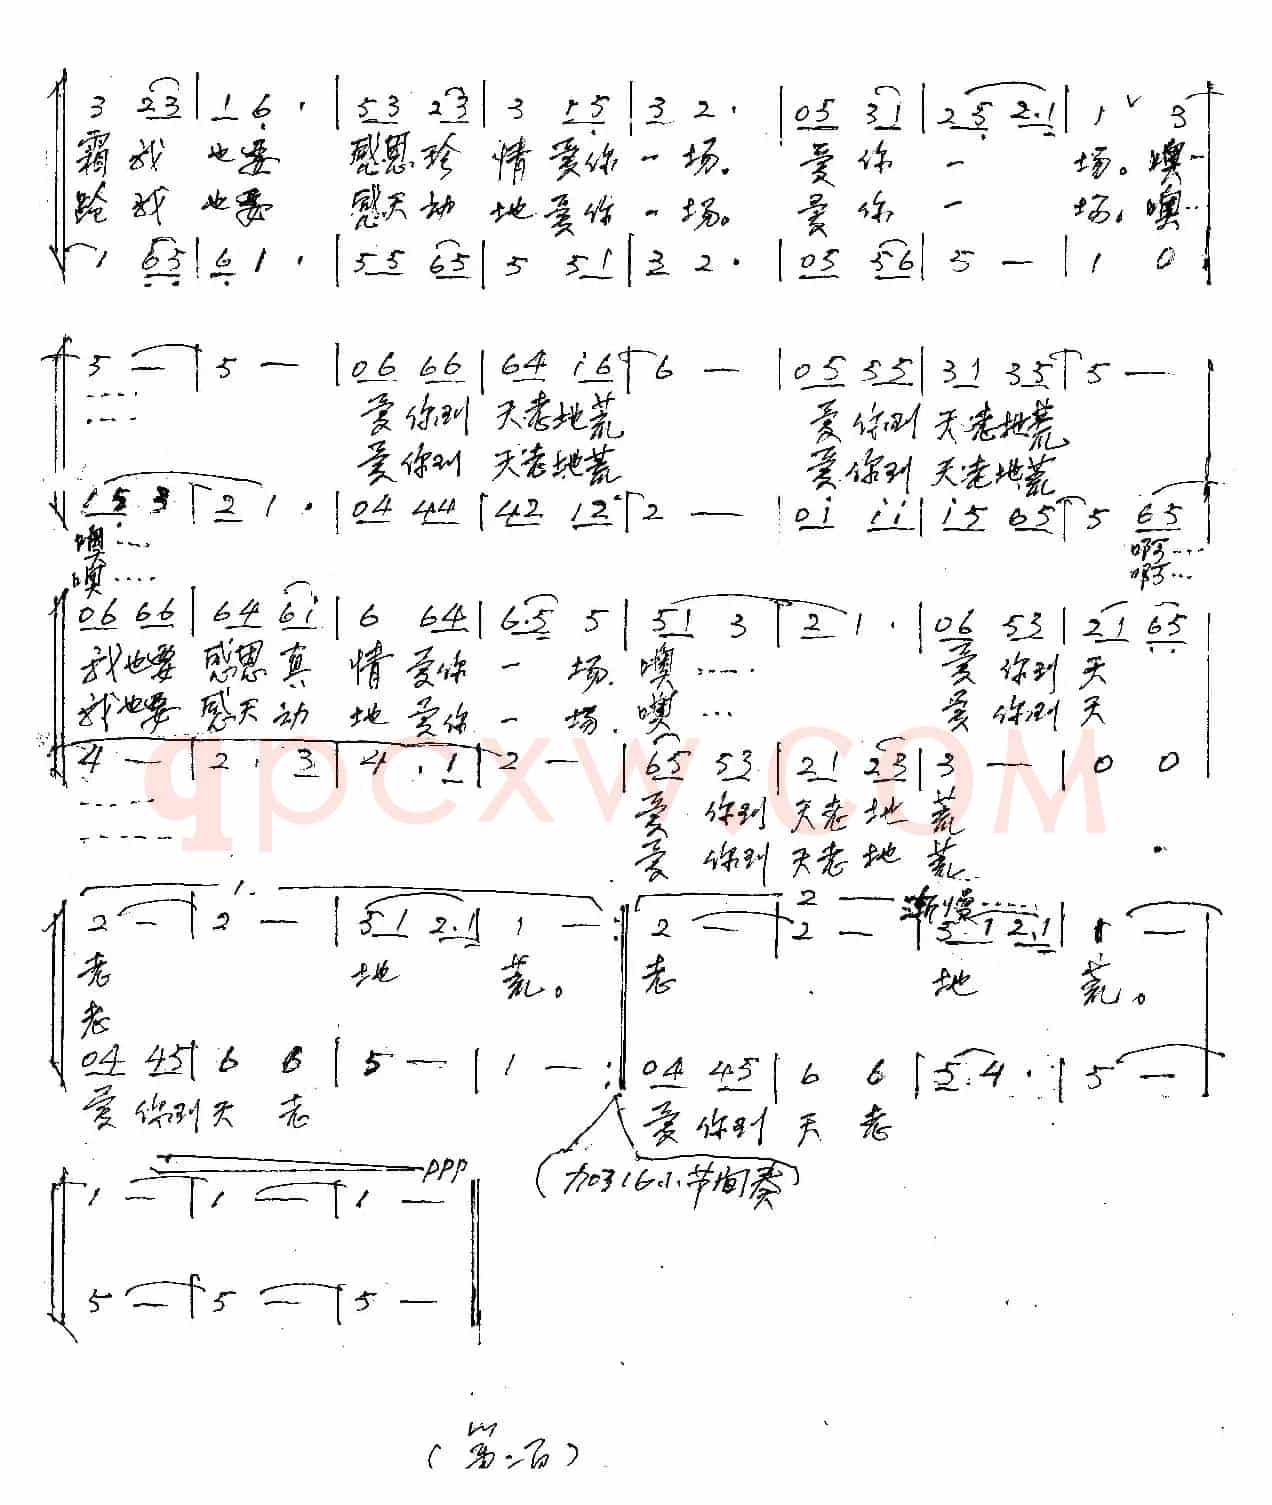 3 23 | 1 6 · | 53 23 | 3 15 | 3 2 · | 05 31 | 25 2·1 | 1 ∨ 3
霜 我 也要 感恩珍 情 爱你 一 场。 爱 你 一 场。噢…
我 也要 感天动 地 爱你 一 场。 爱 你 一 场。噢…
1 65 | 6 1 · | 55 65 | 5 51 | 3 2 · | 05 56 | 5 — | 1 0
5 — | 5 — | 06 66 | 64 i6 | 6 — | 05 55 | 31 35 | 5 —
爱 你到 天老地荒 爱 你到 天老地荒
爱 你到 天老地荒 爱 你到 天老地荒
15 3 | 2 1 · | 04 44 | 42 12 | 2 — | 0i ii | i5 65 | 5 65
噢…… 啊……
噢…… 啊…
06 66 | 64 6i | 6 64 | 6·5 5 | 51 3 | 2 1 · | 06 53 | 21 65
我也要 感恩真 情 爱你 一 场. 噢…… 爱 你到 天
我也要 感天动 地 爱你 一 场. 噢… 爱 你到 天
4 — | 2 · 3 | 4 · 1 | 2 — | 65 53 | 21 23 | 3 — | 0 0
qpcxw.COM
爱 你到 天老 地 荒
爱 你到 天老 地 荒
1. 2 — 渐慢……
2 — | 2 — | 51 2·1 | 1 — :‖ 2 — | 2 — | 51 2·1 | 1 —
老 地 荒。 老 地 荒。
老
04 45 | 6 6 | 5 — | 1 — :‖ 04 45 | 6 6 | 5·4 · | 5 —
爱 你到 天 老 爱 你到 天 老
(加316小节间奏)
ppp
1 — | 1 — | 1 — ‖
5 — | 5 — | 5 — ‖
(第二页)